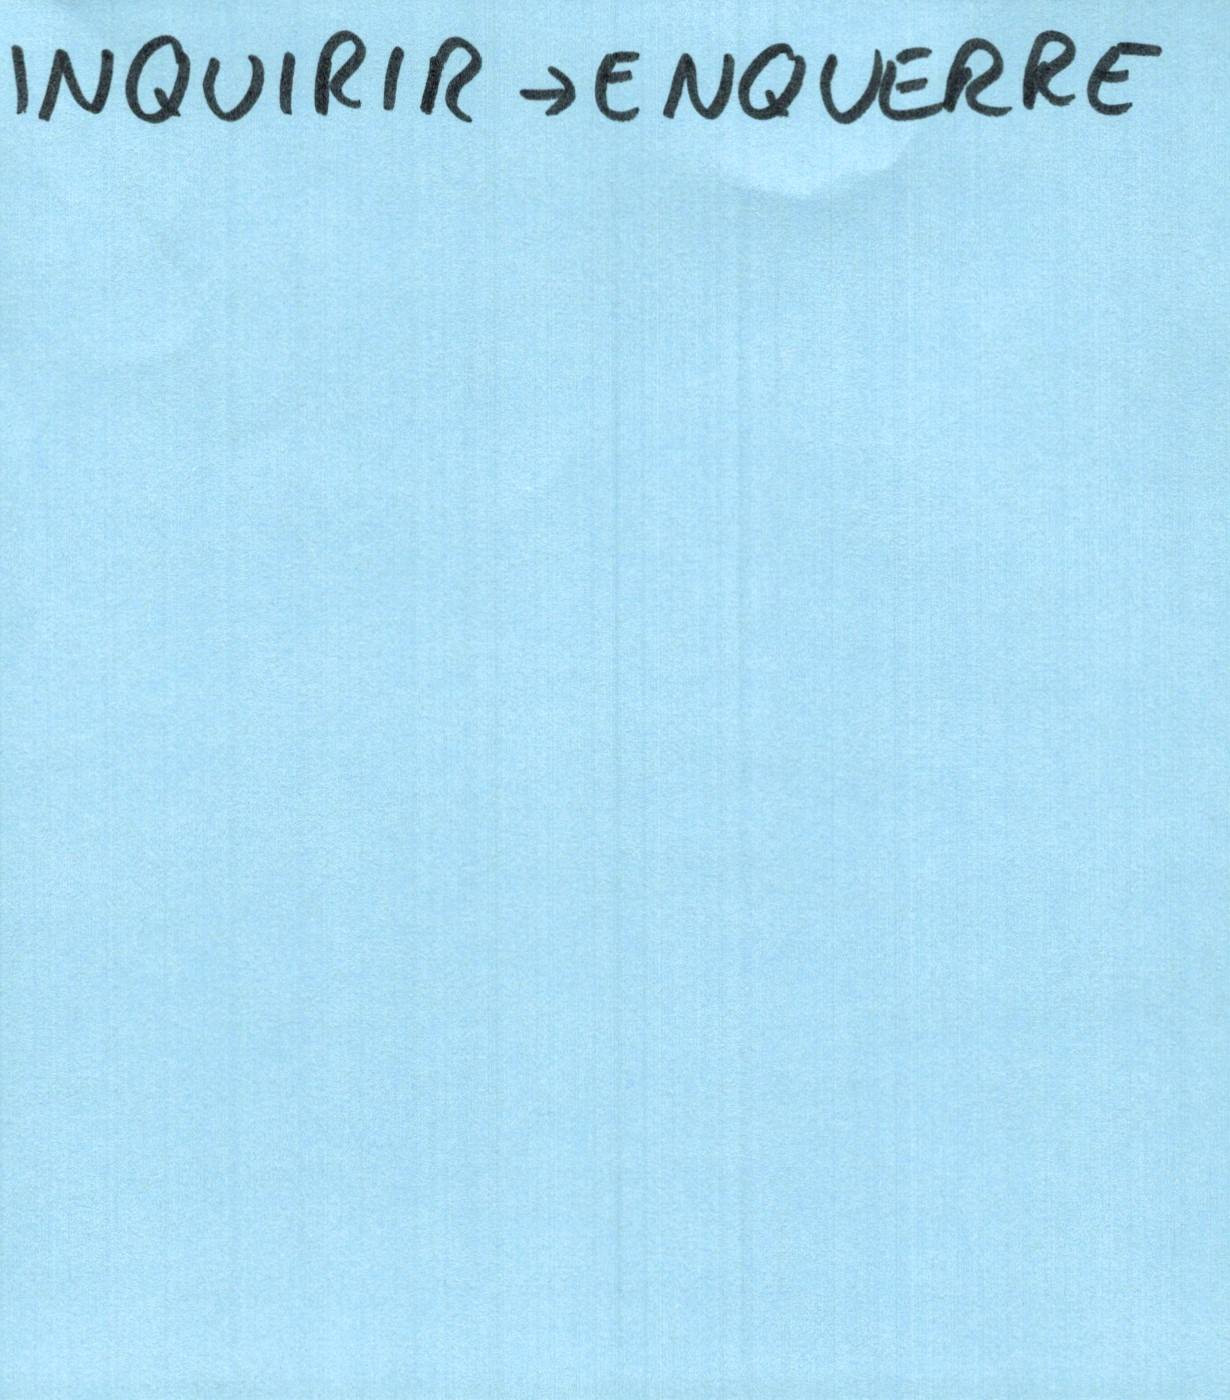 INQUIRIR → ENQUERRE